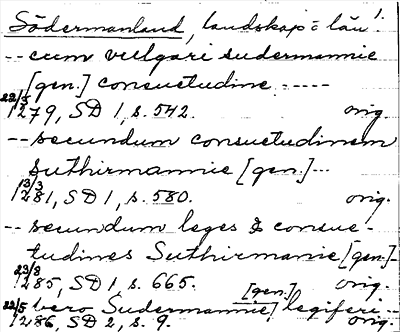 Södermanland, landskap = län 1.
-- cum vulgari sudermannie
[gen.] consuetudine -----
22/5 1279, SD 1, s. 542. orig.
-- secundum consuetudinem
Suthirmannie [gen.] ---
13/3 1281, SD 1, s. 580. orig.
-- secundum leges & consue-
tudines Suthirmanie [gen.] -
23/8 1285, SD 1, s. 665. orig.
-- vero Sudermannie [gen.] legiferi --
22/5 1286, SD 2, s. 9. orig.